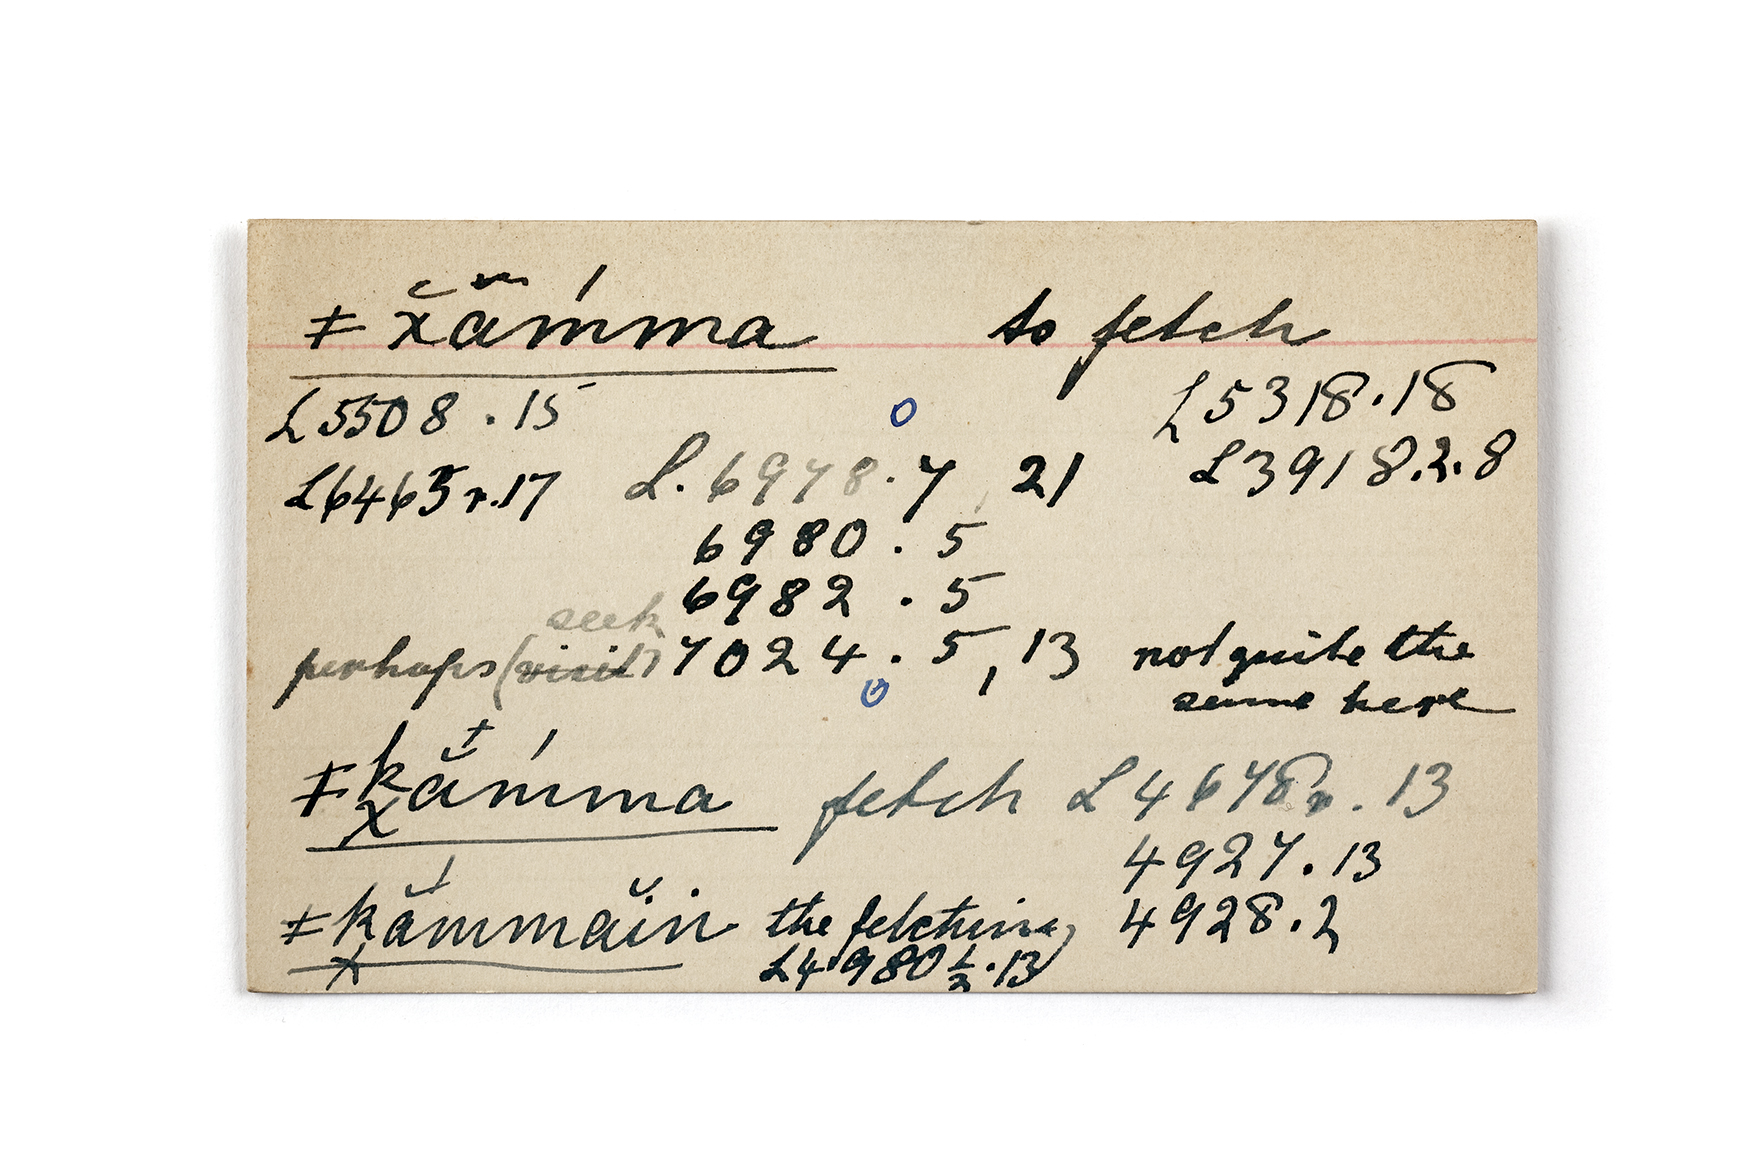 ǂx̆ä̆ḿma to fetch
L5508.15 L5318.18
L6463r.17 L.6978.7, 21 L3918.2.8
6980.5
6982.5
seek
perhaps (visit) 7024.5,13 not quite the
same here
ǂkxắmma fetch L4678r.13
4927.13
ǂkxắmmăin the fetching 4928.2
L4980½.13